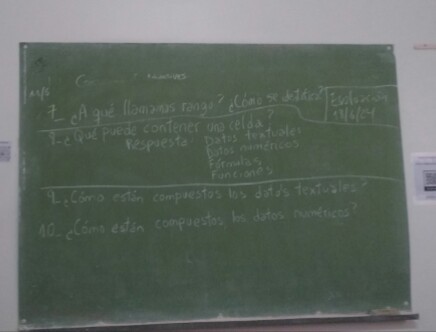 7_ ¿A qué llamamos rango? ¿Cómo se define?
Evaluación
18/6/24
8-¿Qué puede contener una celda?
Respuesta- Datos textuales
Datos numéricos
Fórmulas
Funciones
9-¿Cómo están compuestos los datos textuales?
10_ ¿Cómo están compuestos los datos numéricos?